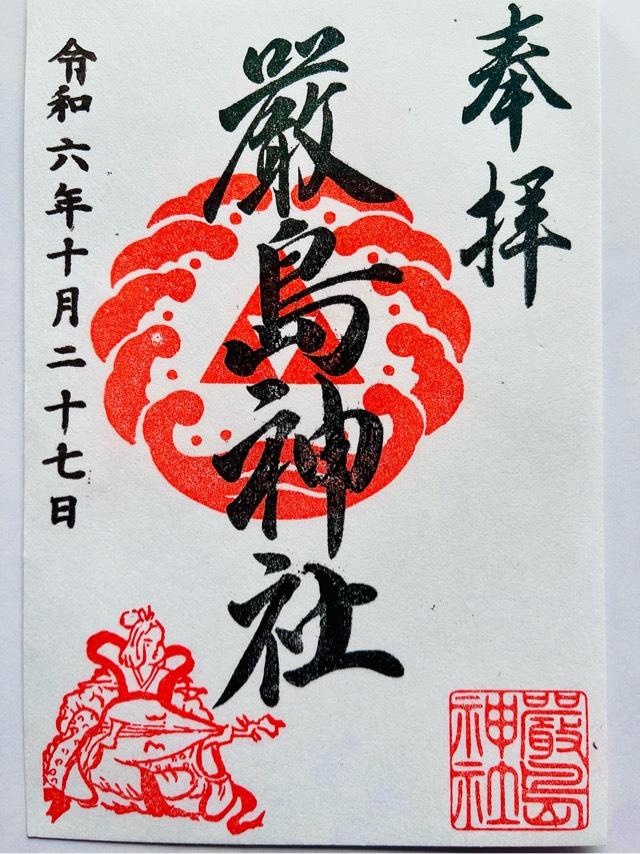 奉拝
厳島神社
令和六年十月二十七日
嚴島
神社